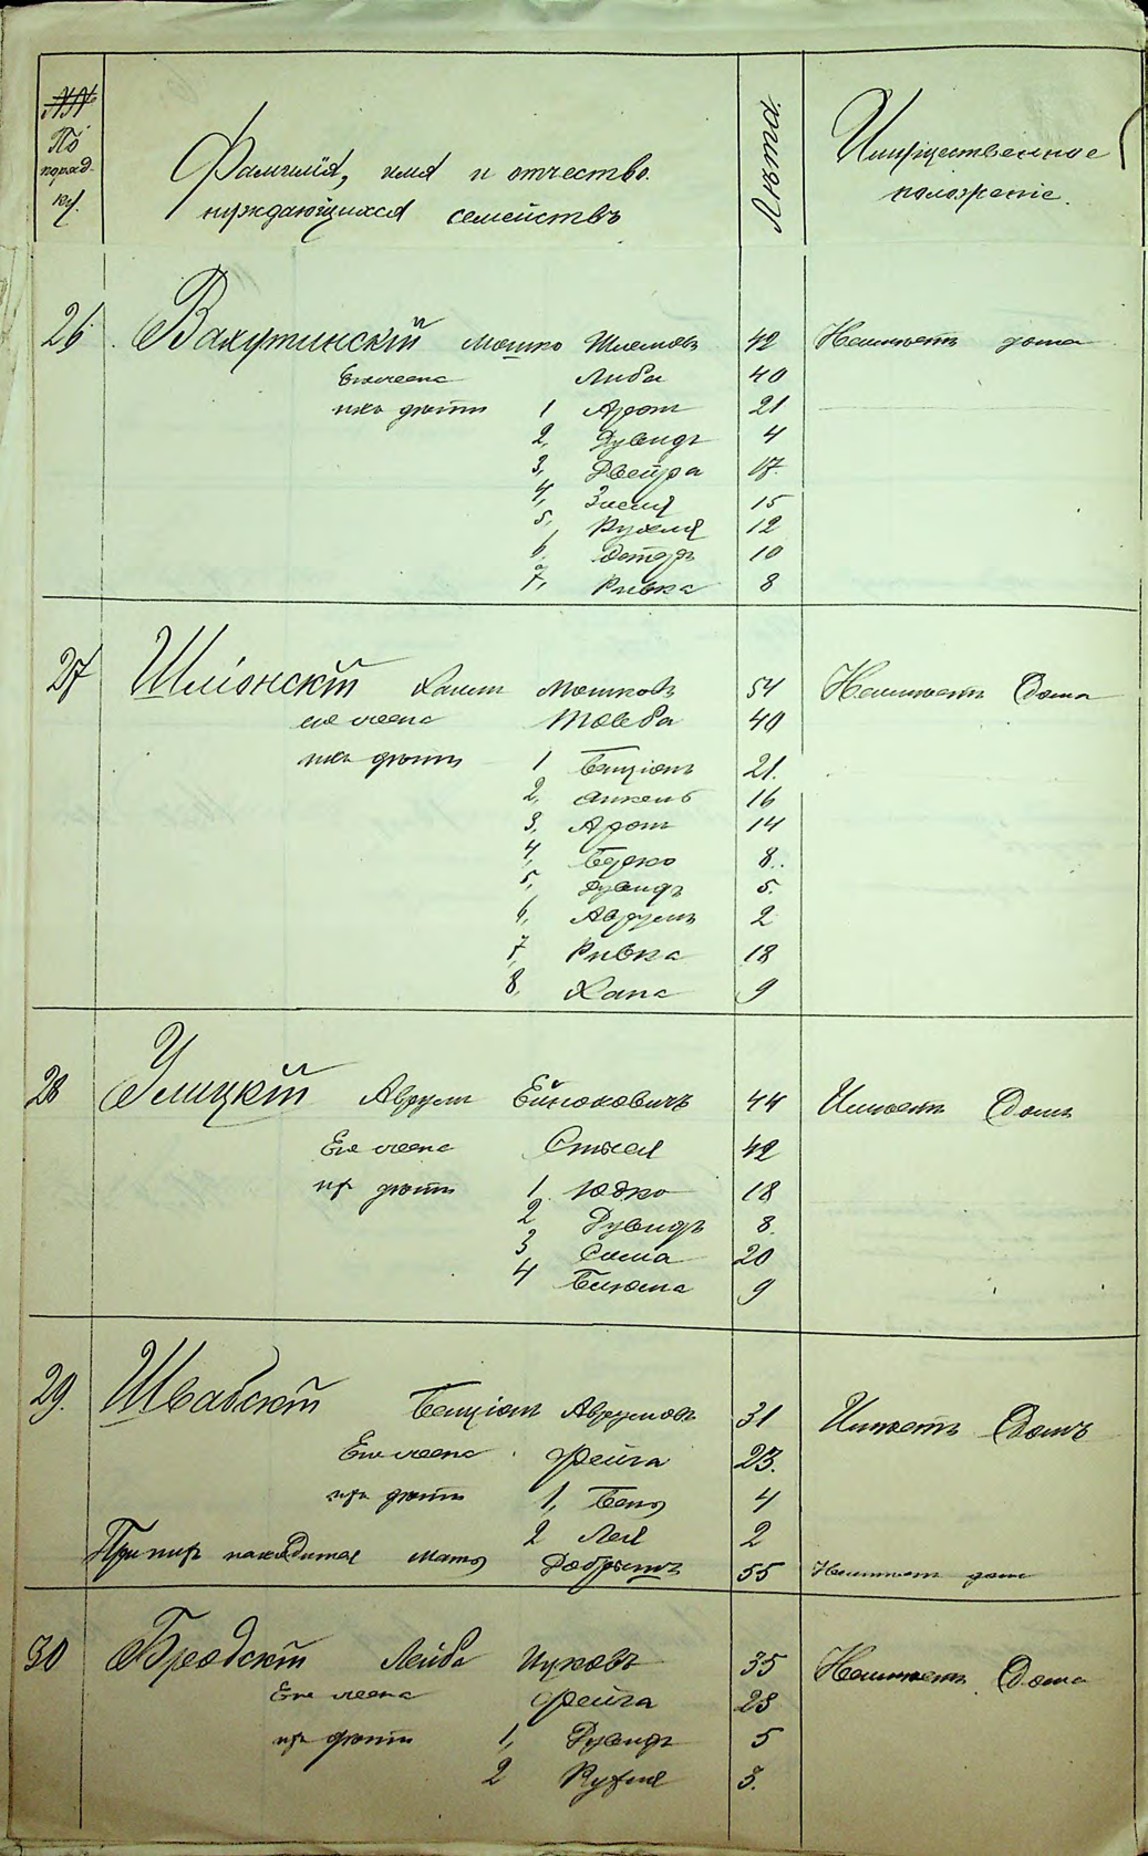 №№
По
поряд-
ку.
Фамилія, имя и отчество
нуждающихся семействъ
Лѣта.
Имущественное
положеніе.
26. Вахутинскій Мошко Шлемовъ 42 Неимѣетъ дома
Его жена Либа 40
ихъ дѣти 1 Аронъ 21
2, Дувидъ 4
3, Двейра 17.
4, Зисля 15
5, Рухля 12
6. Эстеръ 10
7, Ривка 8
27 Шлiонскій Хаимъ Мошковъ 54 Неимѣетъ Дома
его жена Товба 40
ихъ дѣти 1 Бенціонъ 21.
2, Анкель 16
3, Аронъ 14
4, Берко 8.
5, Дувидъ 5.
6, Аврумъ 2
7, Ривка 18
8, Хана 9
28 Улицкій Аврумъ Ейноховичъ 44 Имѣетъ Домъ
Его жена 42
их дѣти 1. Юдко 18
2 Дувидъ 8.
3, Сима 20
4 Блюма 9
29. Швабскій Бенціонъ Аврумовъ 31 Имѣетъ Домъ
Его жена Фейга 23.
ихъ дѣти 1, Беня 4
2 Лея 2
При нихъ находится мать Добрышъ 55 Неимѣетъ дома
30 Бродскій Лейба Ицковъ 35 Неимѣетъ Дома
Его жена Фейга 28
их дѣти 1, Дувидъ 5
2 Рухля 3.